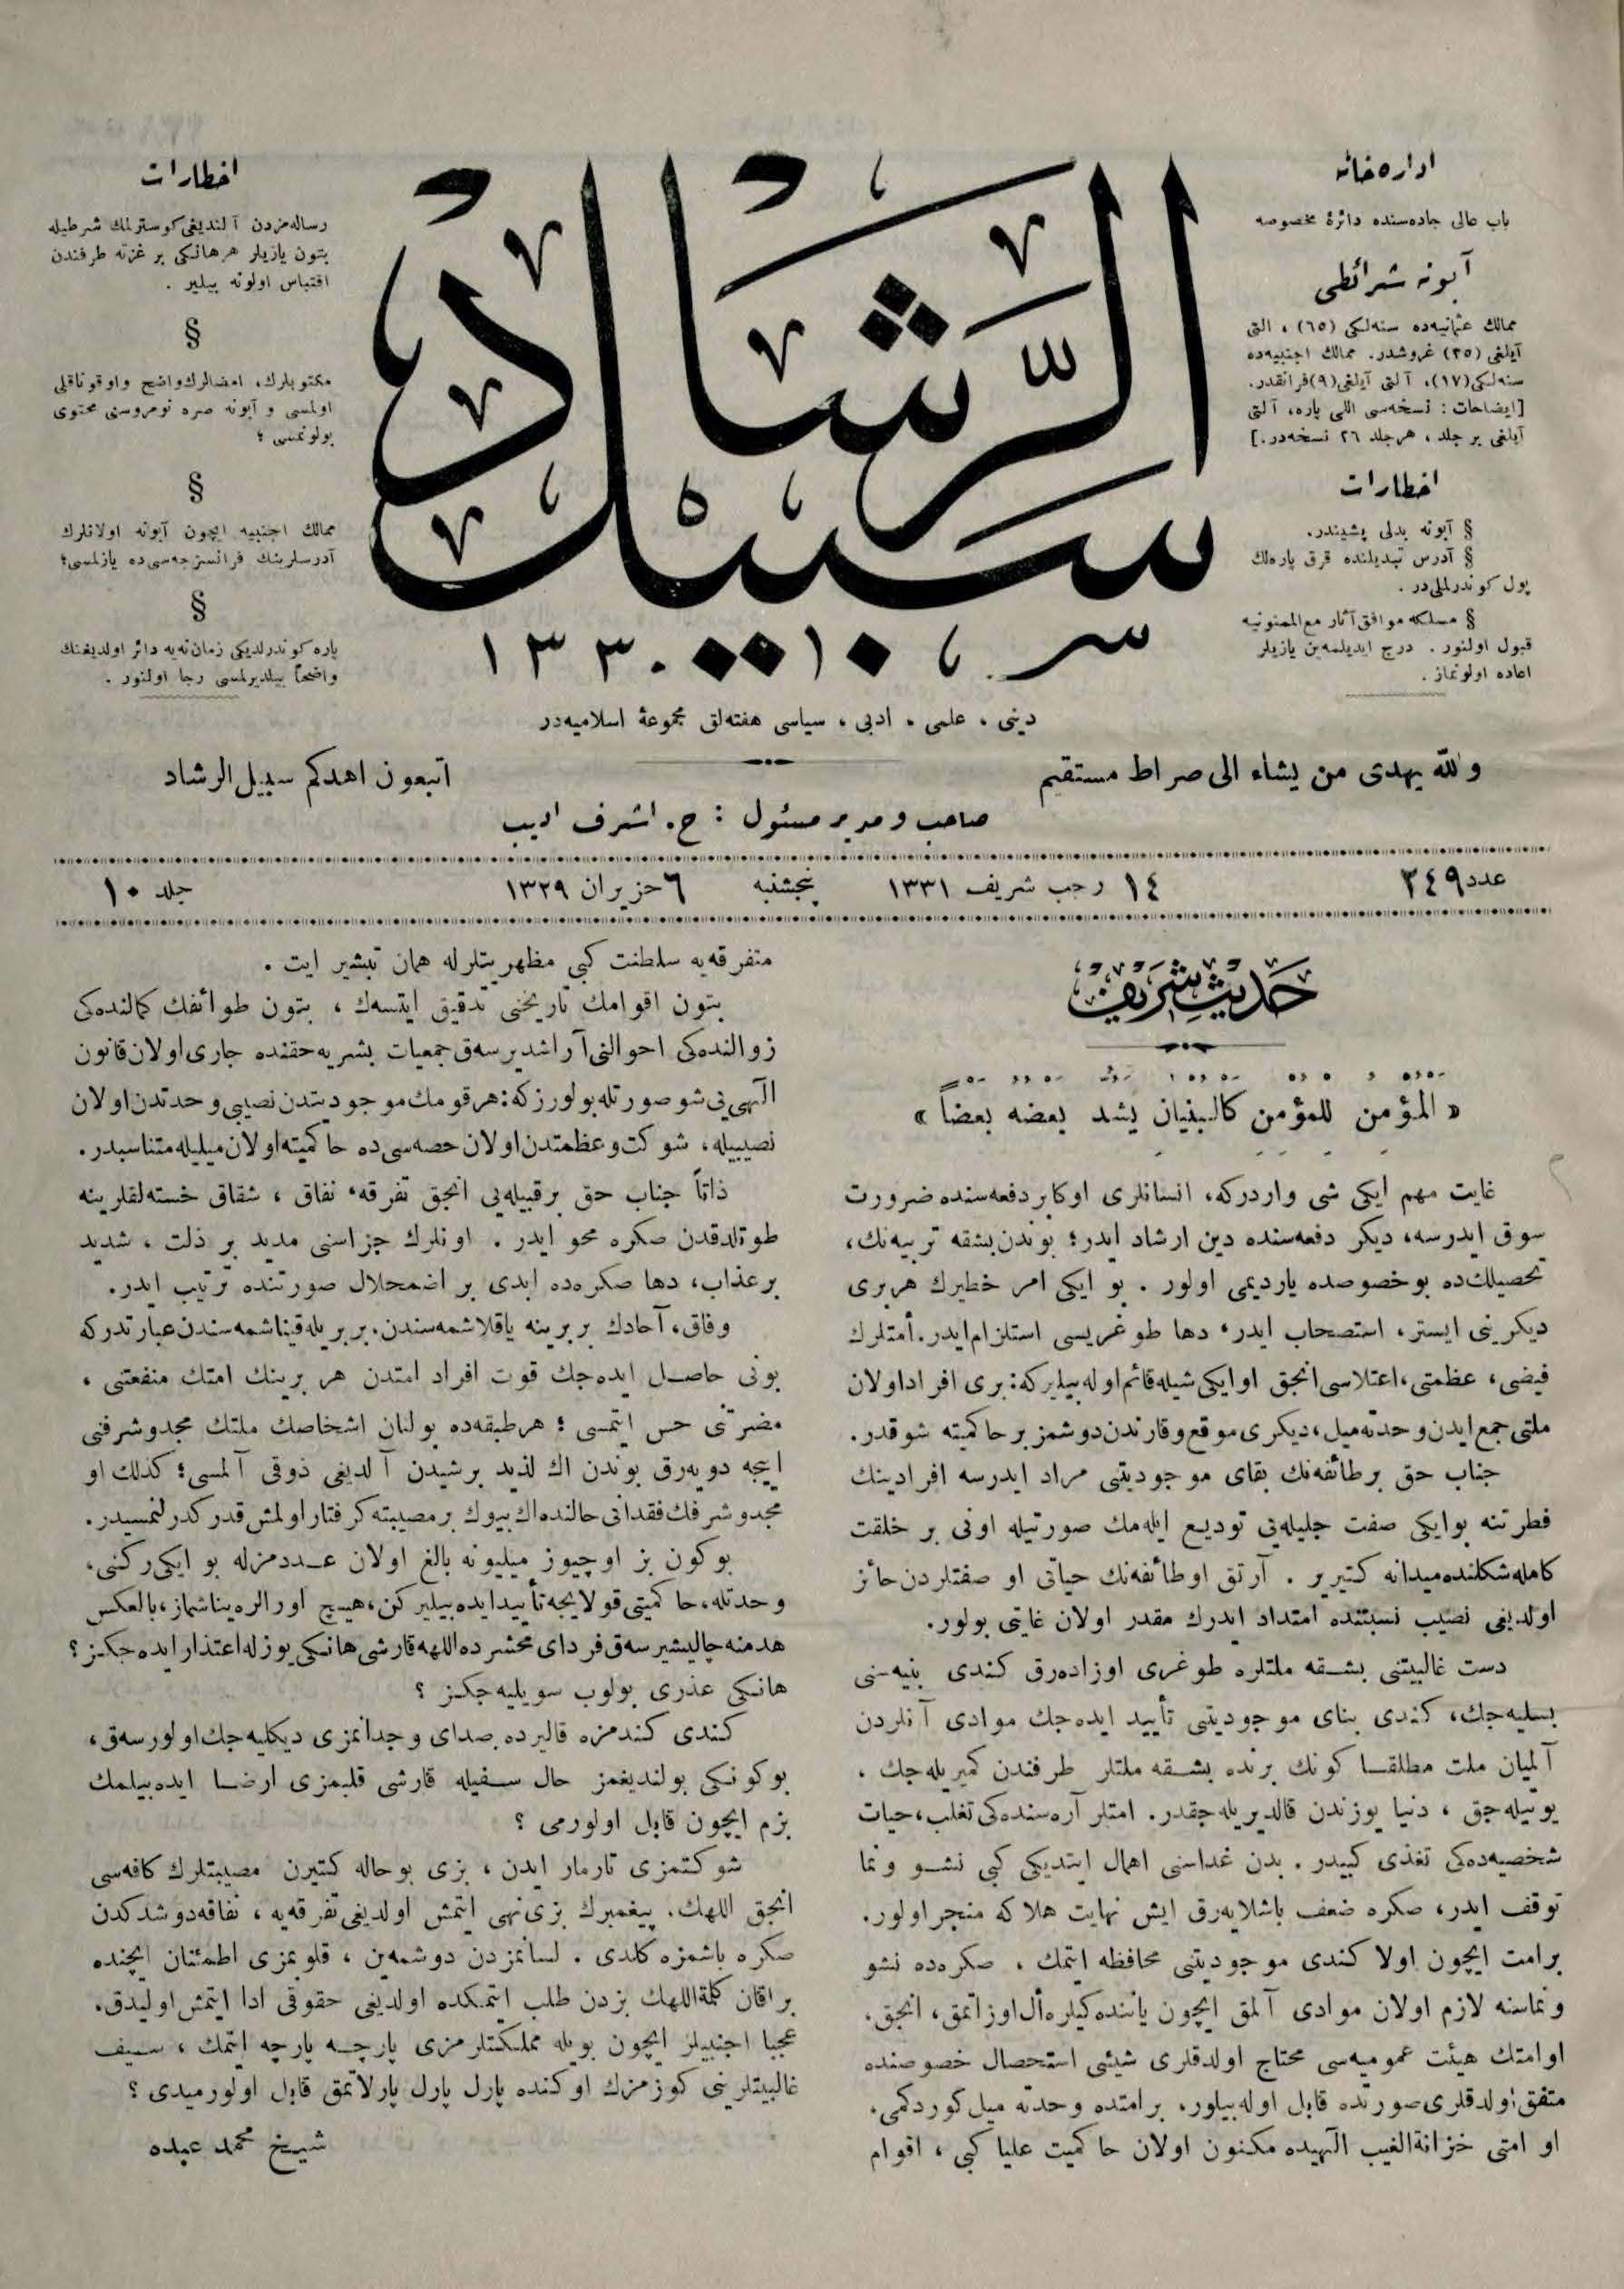 اداره خانه
باب عالی جاده‌سنده دائرۀ مخصوصه
آبونه شرائطی
ممالك عثمانیه‌ده سنه‌لكی (٦٥) ، التی
آیلغی (٣٥) غروشدر. ممالك اجنبیه‌ده
سنه‌لكی (١٧)، آلتی آیلغی (٩) فرانقدر.
[ایضاحات : نسخه‌سی اللی پاره، آلتی
آیلغی بر جلد ، هر جلد ٢٦ نسخه‌در.]
اخطارات
§ آبونه بدلی پشیندر.
§ آدرس تبدیلنده قرق پاره‌لك
پول كوندرلملی‌در .
§ مسلكه موافق آثار مع‌الممنونیه
قبول اولنور . درج ایدیلمه‌ین یازیلر
اعاده اولونماز .
سبیل الرشاد
سر ١٠ ١٣٣٠
اخطارات
رساله‌مزدن آلندیغی كوسترلمك شرطیله
بتون یازیلر هر هانكی بر غزته طرفندن
اقتباس اولونه بیلیر .
§
مكتوبلرك، امضالرك واضح واوقوناقلی
اولمسی و آبونه صره نومروسنی محتوی
بولونمسی ؛
§
ممالك اجنبیه ایچون آبونه اولانلرك
آدرسلرینك فرانسزجه‌سی‌ده یازلمسی؛
§
پاره كوندرلدیكی زمان نه‌یه دائر اولدیغنك
واضحاً بیلدیرلمسی رجا اولنور .
دینی ، علمی ، ادبی ، سیاسی هفته‌لق مجموعۀ اسلامیه‌در
والله یهدی من یشاء الی صراط مستقیم
اتبعون اهدكم سبیل الرشاد
صاحب و مدیر مسئول : ح . اشرف ادیب
عدد ٢٤٩
١٤ رجب شریف ١٣٣١
پنجشنبه
٦ حزیران ١٣٢٩
جلد ١٠
حدیث شریف
« المؤمن للمؤمن كالبنیان یشد بعضه بعضاً »
غایت مهم ایكی شی واردركه، انسانلری اوكا بر دفعه‌سنده ضرورت
سوق ایدرسه، دیكر دفعه‌سنده دین ارشاد ایدر؛ بوندن بشقه تربیه‌نك،
تحصیلك‌ده بو خصوصده یاردیمی اولور . بو ایكی امر خطیرك هر بری
دیكرینی ایستر، استصحاب ایدر، دها طوغریسی استلزام ایدر. أمتلرك
فیضی، عظمتی، اعتلاسی انجق او ایكی شیله قائم اوله بیلیركه: بری افراد اولان
ملتی جمع ایدن وحدته میل، دیكری موقع وقارندن دوشمز بر حاكمیته شوقدر.
جناب حق بر طائفه‌نك بقای موجودیتنی مراد ایدرسه افرادینك
فطرتنه بو ایكی صفت جلیله‌یی تودیع ایله‌مك صورتیله اونی بر خلقت
كامله شكلنده میدانه كتیریر . آرتق او طائفه‌نك حیاتی او صفتلردن حائز
اولدیغی نصیب نسبتنده امتداد ایدرك مقدر اولان غایتی بولور.
دست غالبیتنی بشقه ملتلره طوغری اوزاده‌رق كندی بنیه‌سنی
بسلیه‌جك، كندی بنای موجودیتنی تأیید ایده‌جك موادی آنلردن
آلمیان ملت مطلقا كونك برنده بشقه ملتلر طرفندن كمیریله‌جك ،
یوتیله‌جق ، دنیا یوزندن قالدیریله‌جقدر. امتلر آره‌سنده‌كی تغلب، حیات
شخصیه‌ده‌كی تغذی كبیدر . بدن غداسنی اهمال ایتدیكی كبی نشو و نما
توقف ایدر، صكره ضعف باشلایه‌رق ایش نهایت هلاكه منجر اولور.
بر امت ایچون اولا كندی موجودیتنی محافظه ایتمك ، صكره‌ده نشو
ونماسنه لازم اولان موادی آلمق ایچون یاننده‌كیلره أل اوزاتمق، انجق،
او امتك هیئت عمومیه‌سی محتاج اولدقلری شیئی استحصال خصوصنده
متفق اولدقلری صورتده قابل اوله بیلور. بر امتده وحدته میل كوردكمی،
او امتی خزانةالغیب الهیده مكنون اولان حاكمیت علیا كبی ، اقوام
متفرقه‌یه سلطنت كبی مظهریتلرله همان تبشیر ایت .
بتون اقوامك تاریخنی تدقیق ایتسه‌ك ، بتون طوائفك كمالنده‌كی
زوالنده‌كی احوالنی آراشدیرسه‌ق جمعیات بشریه حقنده جاری اولان قانون
الهی‌یی شو صورتله بولورزكه: هر قومك موجودیتدن نصیبی وحدتدن اولان
نصیبیله، شوكت و عظمتدن اولان حصه‌سی‌ده حاكمیته اولان میلیله متناسبدر.
ذاتاً جناب حق بر قبیله‌یی انجق تفرقه، نفاق ، شقاق خسته‌لقلرینه
طوتلدقدن صكره محو ایدر . اونلرك جزاسنی مدید بر ذلت ، شدید
بر عذاب، دها صكره‌ده ابدی بر اضمحلال صورتنده ترتیب ایدر.
وفاق، آحادك بربرینه یاقلاشمه‌سندن، بربریله قیناشمه‌سندن عبارتدركه
بونی حاصل ایده‌جك قوت افراد امتدن هر برینك امتك منفعتنی ،
مضرتنی حس ایتمسی ؛ هر طبقه‌ده بولنان اشخاصك ملتك مجد و شرفنی
اییجه دویه‌رق بوندن اك لذیذ بر شیدن آلدیغی ذوقی آلمسی؛ كذلك او
مجد و شرفك فقدانی حالنده اك بیوك بر مصیبته كرفتار اولمش قدر كدرلنمسیدر.
بوكون بز اوچیوز میلیونه بالغ اولان عددمزله بو ایكی ركنی،
وحدتله، حاكمیتی قولایجه تأیید ایده بیلیركن، هیچ اورالره یناشماز، بالعكس
هدمنه چالیشیرسه‌ق فردای محشرده اللهه قارشی هانكی یوزله اعتذار ایده‌جكز ؟
هانكی عذری بولوب سویلیه‌جكز ؟
كندی كندمزه قالیرده صدای وجدانمزی دیكلیه‌جك اولورسه‌ق،
بوكونكی بولندیغمز حال سفیله قارشی قلبمزی ارضا ایده‌بیلمك
بزم ایچون قابل اولورمی ؟
شوكتمزی تارمار ایدن ، بزی بو حاله كتیرن مصیبتلرك كافه‌سی
انجق اللهك، پیغمبرك بزی نهی ایتمش اولدیغی تفرقه‌یه ، نفاقه دوشدكدن
صكره باشمزه كلدی . لسانمزدن دوشمه‌ین ، قلوبمزی اطمئنان ایچنده
براقان كلمةاللهك بزدن طلب ایتمكده اولدیغی حقوقی ادا ایتمش اولیدق،
عجبا اجنبیلر ایچون بویله مملكتلرمزی پارچه پارچه ایتمك ، سیف
غالبیتلرینی كوزمزك اوكنده پارل پارل پارلاتمق قابل اولورمیدی ؟
شیخ محمد عبده